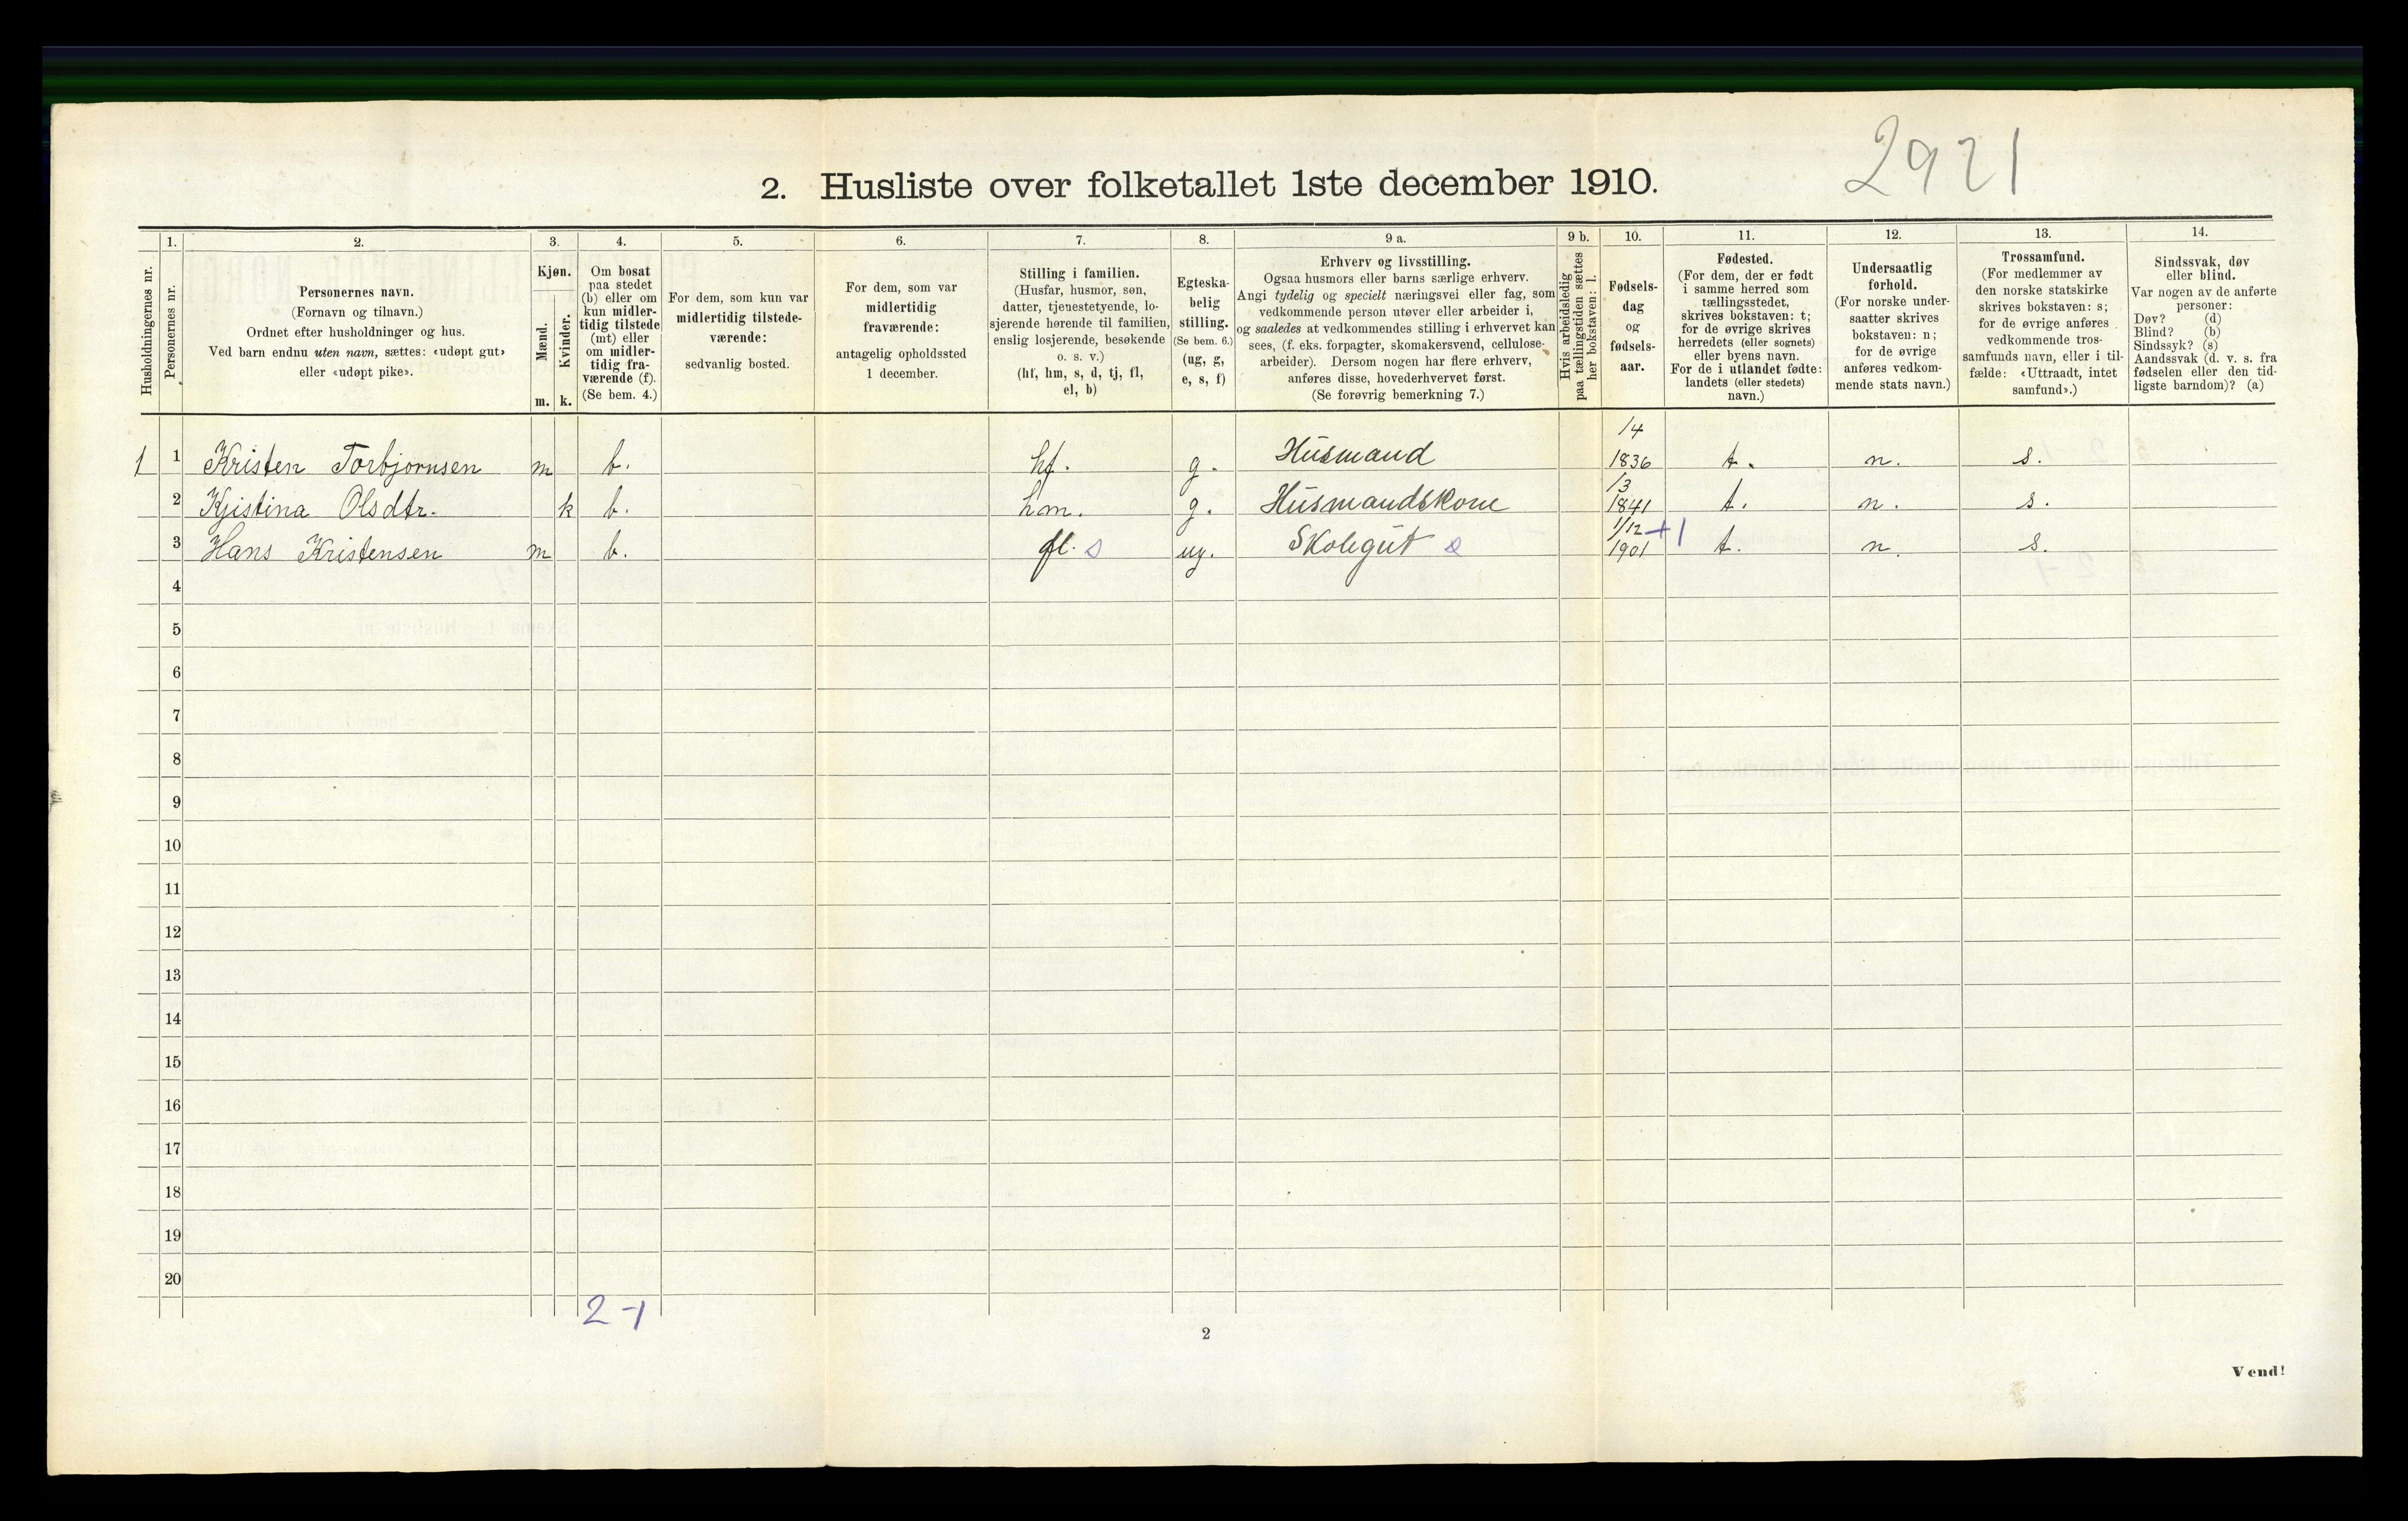 2921
2. Husliste over folketallet 1ste december 1910.
Husholdningernes nr.
1.
Personernes nr.
2.
Personernes navn.
(Fornavn og tilnavn.)
Ordnet efter husholdninger og hus.
Ved barn endnu uten navn, sættes: «udøpt gut»
eller «udøpt pike».
3.
Kjøn.
Mænd.
Kvinder.
m. k.
4.
Om bosat
paa stedet
(b) eller om
kun midler-
tidig tilstede
(mt) eller
om midler-
tidig fra-
værende (f).
(Se bem. 4.)
5.
For dem, som kun var
midlertidig tilstede-
værende:
sedvanlig bosted.
6.
For dem, som var
midlertidig
fraværende:
antagelig opholdssted
1 december.
7.
Stilling i familien.
(Husfar, husmor, søn,
datter, tjenestetyende, lo-
sjerende hørende til familien,
enslig losjerende, besøkende
o. s. v.)
(hf, hm, s, d, tj, fl,
el, b)
8.
Egteska-
belig
stilling.
(Se bem. 6.)
(ug, g,
e, s, f)
9 a.
Erhverv og livsstilling.
Ogsaa husmors eller barns særlige erhverv.
Angi tydelig og specielt næringsvei eller fag, som
vedkommende person utøver eller arbeider i,
og saaledes at vedkommendes stilling i erhvervet kan
sees, (f. eks. forpagter, skomakersvend, cellulose-
arbeider). Dersom nogen har flere erhverv,
anføres disse, hovederhvervet først.
(Se forøvrig bemerkning 7.)
9 b.
Hvis arbeidsledig
paa tællingstiden sættes
her bokstaven: l.
10.
Fødsels-
dag
og
fødsels-
aar.
11.
Fødested.
(For dem, der er født
i samme herred som
tællingsstedet,
skrives bokstaven: t;
for de øvrige skrives
herredets (eller sognets)
eller byens navn.
For de i utlandet fødte:
landets (eller stedets)
navn.)
12.
Undersaatlig
forhold.
(For norske under-
saatter skrives
bokstaven: n;
for de øvrige
anføres vedkom-
mende stats navn.)
13.
Trossamfund.
(For medlemmer av
den norske statskirke
skrives bokstaven: s;
for de øvrige anføres
vedkommende tros-
samfunds navn, eller i til-
fælde: «Uttraadt, intet
samfund».)
14.
Sindssvak, døv
eller blind.
Var nogen av de anførte
personer:
Døv? (d)
Blind? (b)
Sindssyk? (s)
Aandssvak (d. v. s. fra
fødselen eller den tid-
ligste barndom)? (a)
1 1 Kristen Torbjørnsen m b. hf. g. Husmand 1/4 1836 t. n. s.
2 Kjistina Olsdtr. k b. hm. g. Husmandskone 1/3 1841 t. n. s.
3 Hans Kristensen m b. fl. s ug. Skolegut s 1/12 +1 1901 t. n. s.
4
5
6
7
8
9
10
11
12
13
14
15
16
17
18
19
20
2-1
2
Vend!